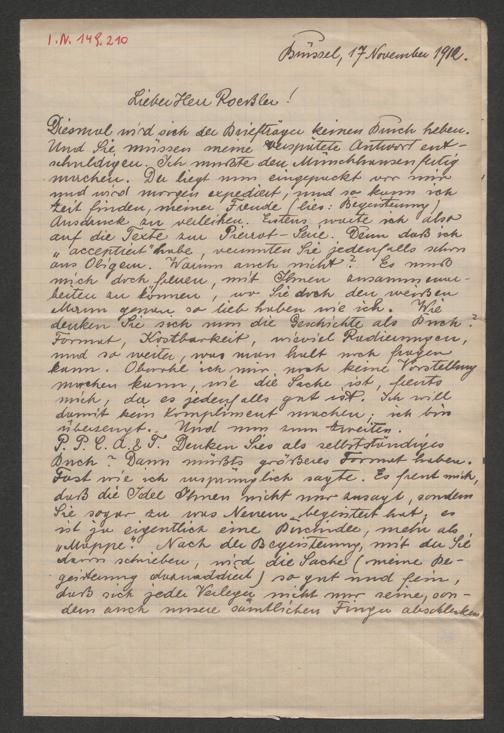 I.N. 149.210
Brüssel, 17 November 1912.
Lieber Herr Roessler!
Diesmal wird sich der Briefträger keinen Bruch heben.
Und Sie müssen meine verspätete Antwort ent-
schuldigen. Ich musste den Münchhausen fertig
machen. Der liegt nun eingepackt vor mir
und wird morgen expediert, und so kann ich
Zeit finden, meiner Freude (lies: Begeisterung)
Ausdruck zu verleihen. Erstens warte ich also
auf die Texte zur Pierrot-Serie. Denn daß ich
„acceptiert" habe, vermuten Sie jedenfalls schon
aus Obigem. Warum auch nicht? Es muß
mich doch freuen, mit Ihnen zusammenar-
beiten zu können, wo Sie doch den weißen
Mann genau so lieb haben wie ich. Wie
denken Sie sich nun die Geschichte als Buch?
Format, Kostbarkeit, wieviel Radierungen,
und so weiter, was man halt noch fragen
kann. Obwohl ich mir noch keine Vorstellung
machen kann, wie die Sache ist, freuts
mich, da es jedenfalls gut ist. Ich will
damit kein Kompliment machen; ich bin
überzeugt. Und nun zum Zweiten.
P. P. C. A. & T. Denken Sies als selbstständiges
Buch? Dann müßts größeres Format haben.
Fast wie ich ursprünglich sagte. Es freut mich,
daß die Idee Ihnen nicht nur zusagt, sondern
Sie sogar zu was Neuem begeistert hat; es
ist ja eigentlich eine Buchidee, mehr als
„Mappe". Nach der Begeisterung, mit der Sie
davon schrieben, wird die Sache (meine Be-
geisterung dazuaddiert) so gut und fein,
daß sich jeder Verleger nicht nur seine, son-
dern auch unsere sämtlichen Finger abschlecken